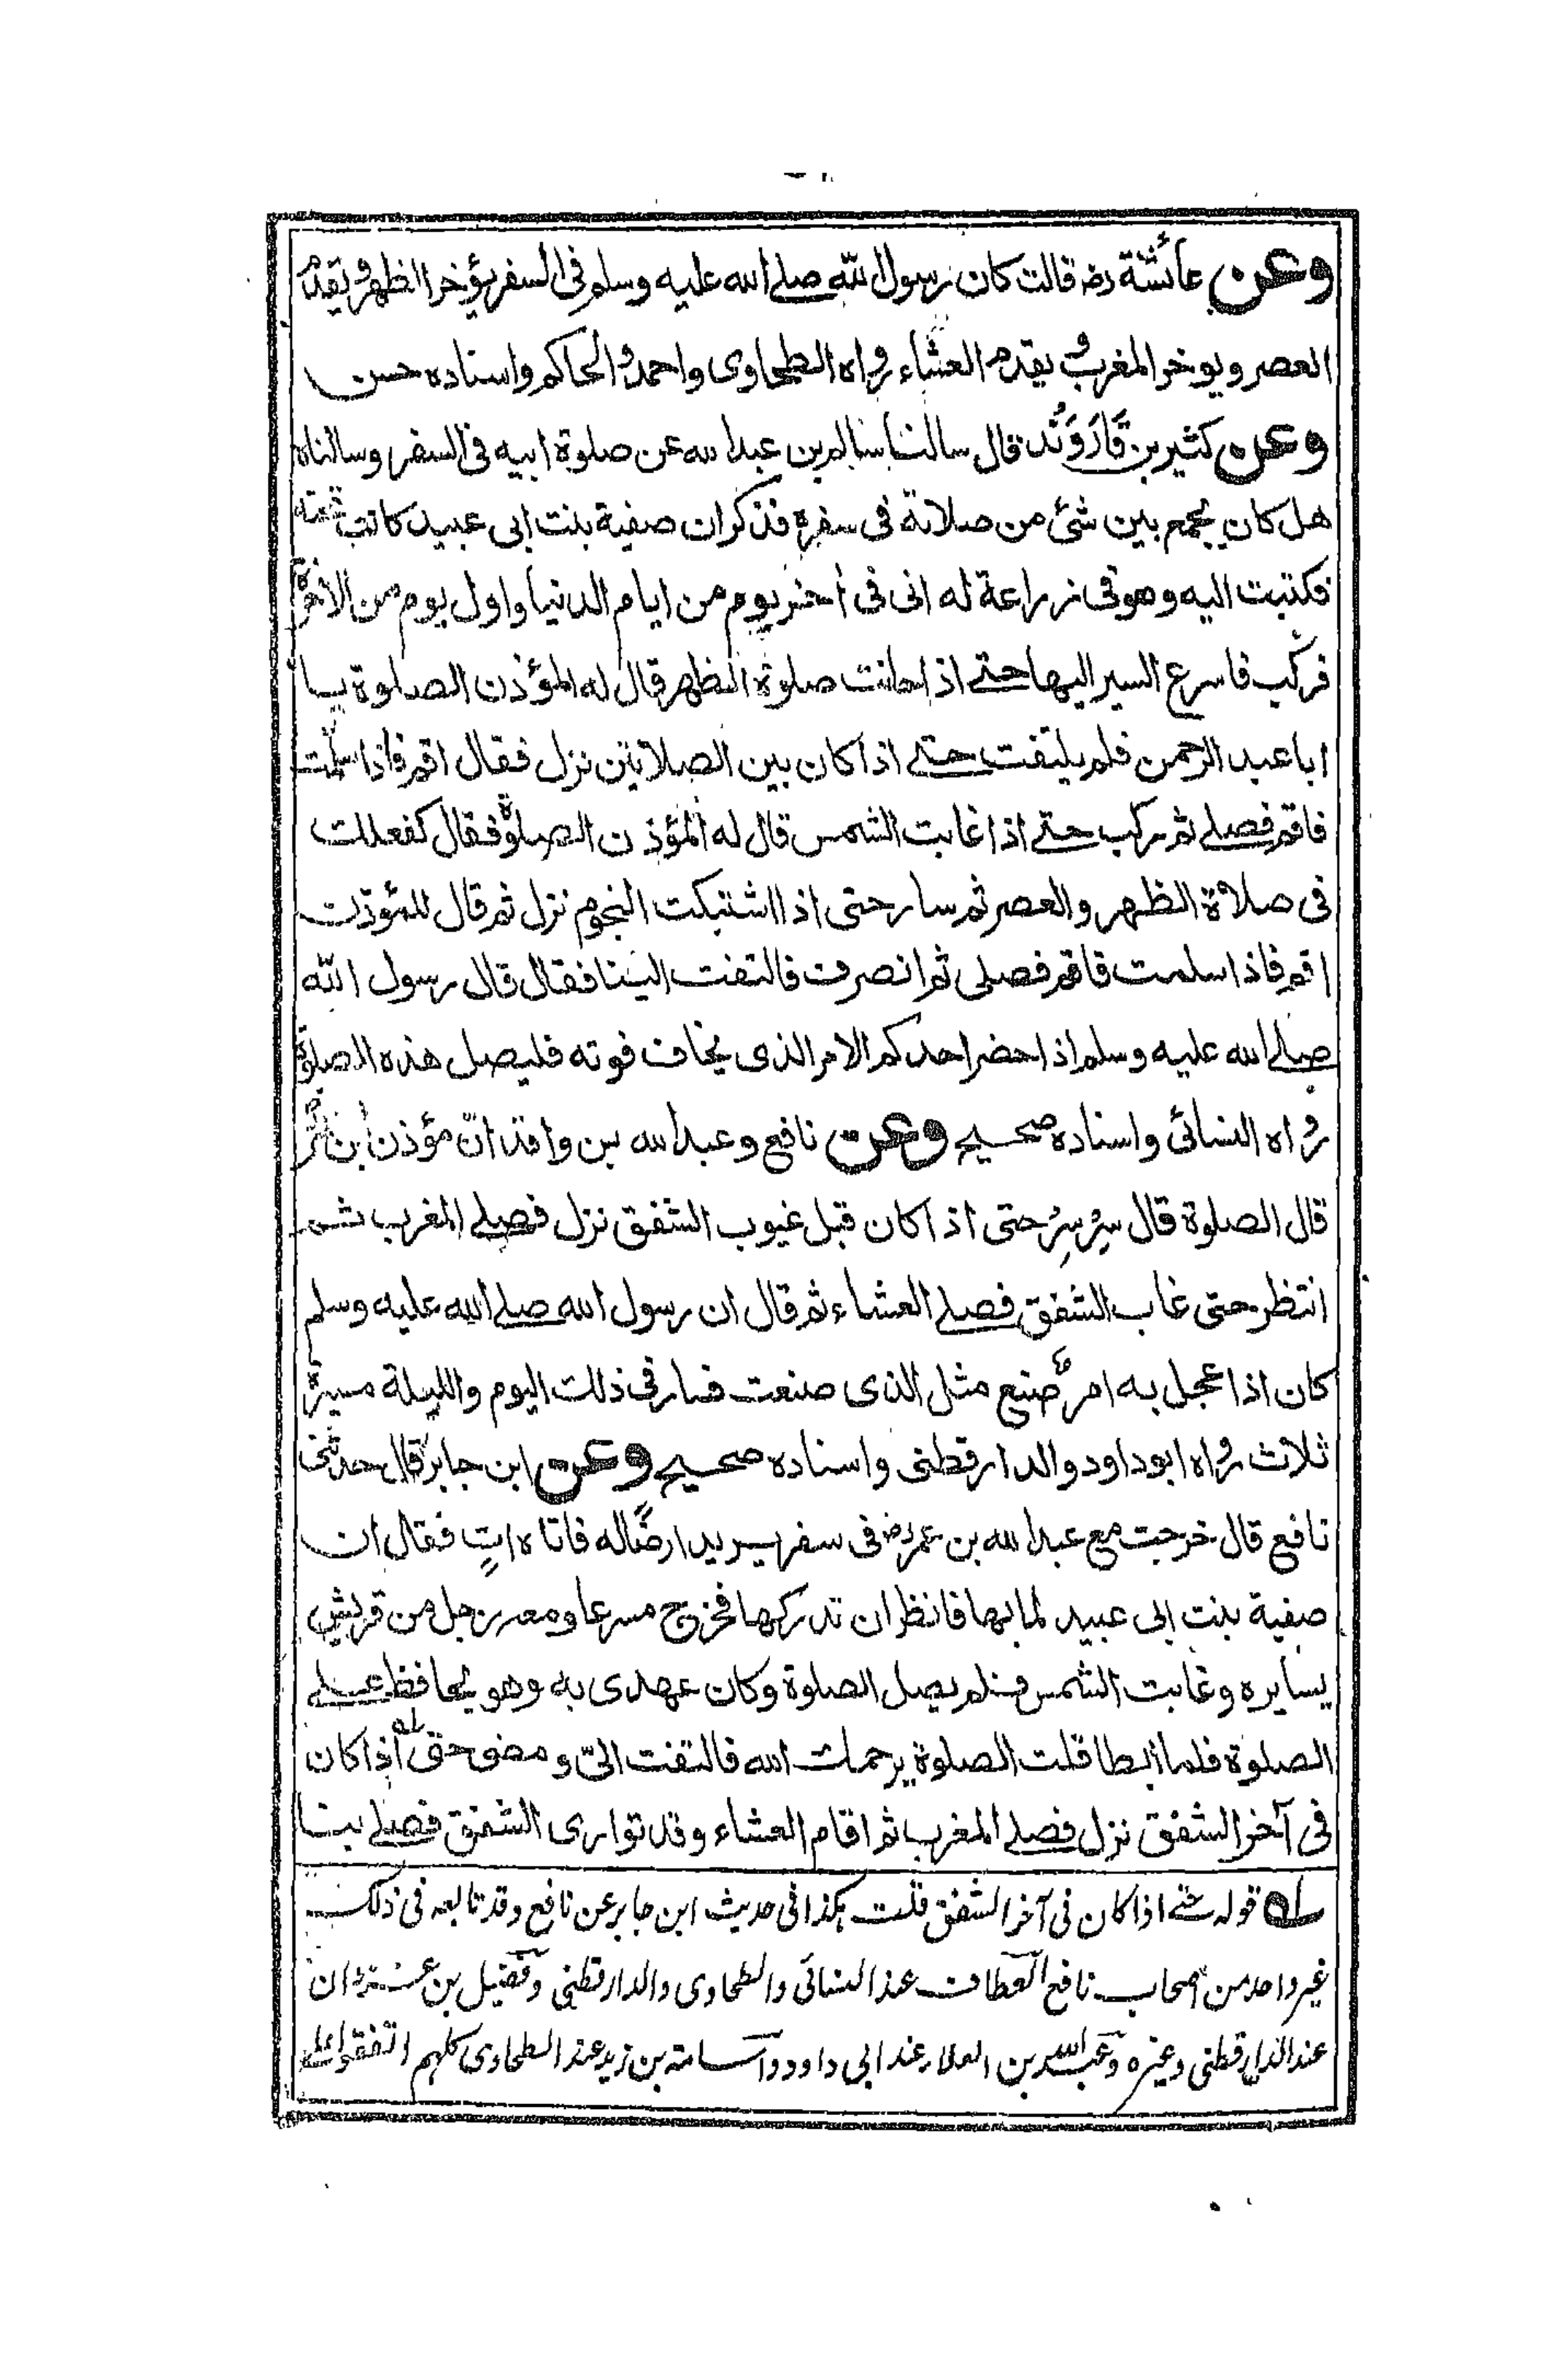 وعن عائشة رضه قالت كان رسول الله صلے الله عليه وسلم فى السفر يؤخر الظهر و يقدم
العصر و يوخر المغرب و يقدم العشاء رواه الطحاوى واحمد والحاكم واسناده حسن
وعن كثير بن قَارَوَنْد قال سالنا سالم بن عبد الله عن صلوة ابيه فى السفر وسالناه
هل كان يجمع بين شئ من صلاته فى سفره فذكر ان صفية بنت ابى عبيد كانت تحته
فكتبت اليه وهو فى زراعة له انى فى أخر يوم من ايام الدنيا واول يوم من الاخرة
فركب فاسرع السير اليها حتے اذا حانت صلوة الظهر قال له المؤذن الصلوة يا
ابا عبد الرحمن فلم يلتفت حتے اذا كان بين الصلاتين نزل فقال اقم فاذا سلمت
فاقم فصلے ثم ركب حتے اذا غابت الشمس قال له المؤذن الصلوة فقال كفعلك
فى صلاة الظهر والعصر ثم سار حتى اذا اشتبكت النجوم نزل ثم قال للمؤذن
اقم فاذا سلمت فاقم فصلى ثم انصرف فالتفت الينا فقال قال رسول الله
صلے الله عليه وسلم اذا حضر احدكم الامر الذى يخاف فوته فليصل هذه الصلوة
رواه النسائى واسناده صحيح وعن نافع وعبد الله بن واقد انّ مؤذن ابن عمر
قال الصلوة قال سِرْ سِرْ حتى اذا كان قبل غيوب الشفق نزل فصلے المغرب ثم
انتظر حتى غاب الشفق فصلے العشاء ثم قال ان رسول الله صلے الله عليه وسلم
كان اذا عجل به امر صنع مثل الذى صنعت فسار فى ذلك اليوم والليلة مسيرة
ثلاث رواه ابوداود والدارقطنى واسناده صحيح وعن ابن جابر قال حدثنى
نافع قال خرجت مع عبد الله بن عمر رضه فى سفر يريد ارضًا له فاتاه اتٍ فقال ان
صفية بنت ابى عبيد لما بها فانظر ان تدركها فخرج مسرعا ومعه رجل من قريش
يسايره وغابت الشمس فلم يصل الصلوة وكان عهدى به وهو يحافظ علے
الصلوة فلما ابطا قلت الصلوة يرحمك الله فالتفت الىّ ومضى حتى له اذا كان
فى آخر الشفق نزل فصلے المغرب ثم اقام العشاء وقد توارى الشفق فصلے بنا
له قوله حتے اذا كان فى آخر الشفق قلت هكذا فى حديث ابن جابر عن نافع وقد تابعه فى ذلك
غير واحد من اصحاب نافع العطاف عند النسائى والطحاوى والدارقطنى وفضيل بن غزوان
عند الدارقطنى وغيره وعبد الله بن العلاء عند ابى داود واسامة بن زيد عند الطحاوى كلهم اتفقوا على